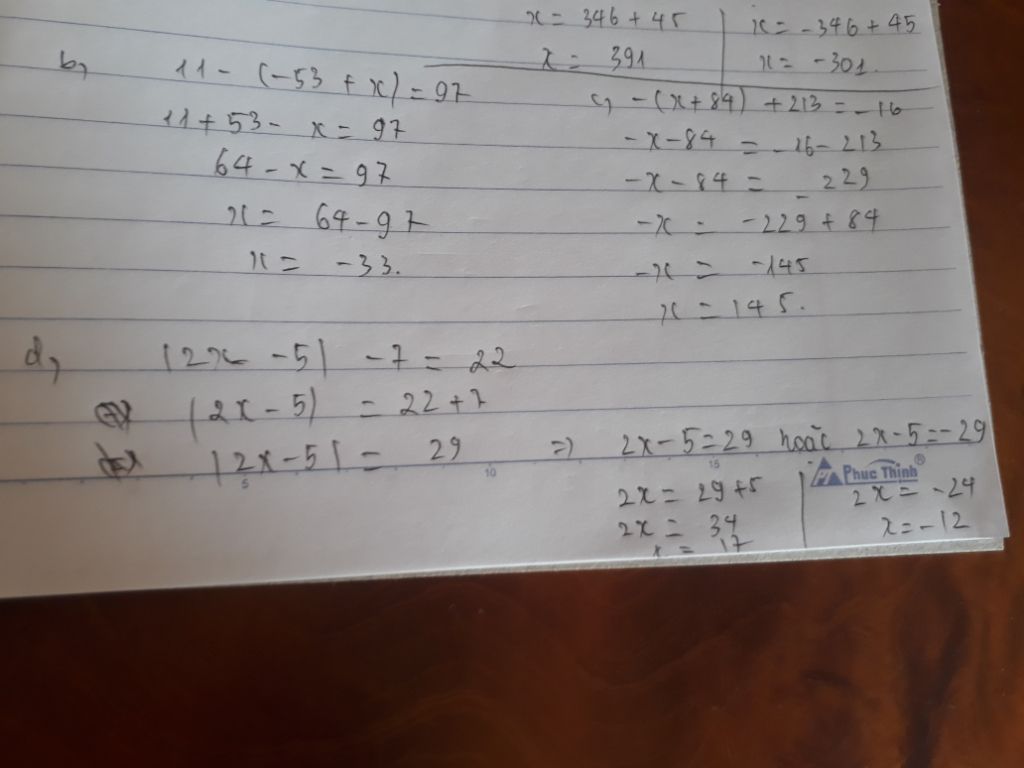 x = 346 + 45
x = 391
x = -346 + 45
x = -301.
b,
11 - (-53 + x) = 97
11 + 53 - x = 97
64 - x = 97
x = 64 - 97
x = -33.
c, -(x + 84) + 213 = -16
-x - 84 = -16 - 213
-x - 84 = -229
-x = -229 + 84
-x = -145
x = 145.
d, |2x - 5| - 7 = 22
|2x - 5| = 22 + 7
|2x - 5| = 29 => 2x - 5 = 29 hoặc 2x - 5 = -29
2x = 29 + 5
2x = 34
x = 17
2x = -24
x = -12
5
10
15
Phuc Thinh®